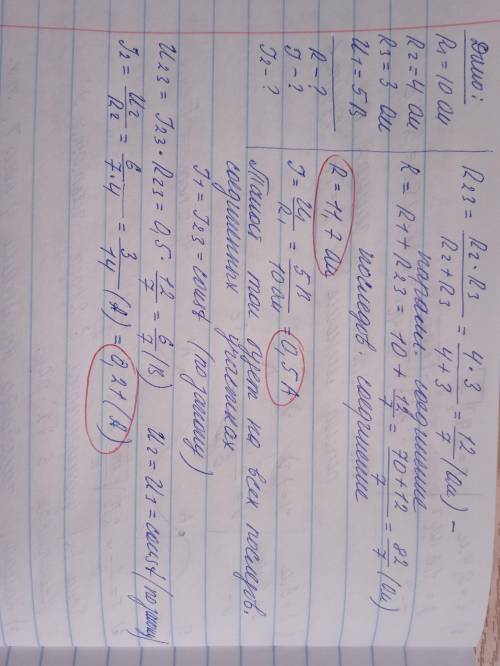 Дано:
R1 = 10 Ом
R2 = 4 Ом
R3 = 3 Ом
U1 = 5 В
R - ?
I - ?
I2 - ?
R23 = R2·R3 / R2+R3 = 4·3 / 4+3 = 12/7 (Ом) -
паралл. соединение
R = R1 + R23 = 10 + 12/7 = 70+12 / 7 = 82/7 (Ом)
последов. соединение
R = 11,7 Ом
I = U1/R1 = 5 В / 10 Ом = 0,5 А
ток будет на всех последов.
соединения участках
I1 = I23 = const (по закону)
U23 = I23·R23 = 0,5·12/7 = 6/7 (В) U2 = U3 = const (по закону)
I2 = U2/R2 = 6 / 7·4 = 3/14 (А) = 0,21 (А)